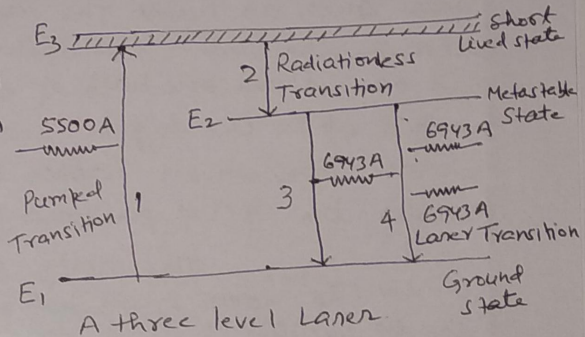 E3
Short
Lived state
2 Radiationless
Transition
E2
Metastable
State
5500A
6943A
6943A
6943A
Laser Transition
Pumped
Transition
1
3
4
E1
Ground
state
A three level Laser.